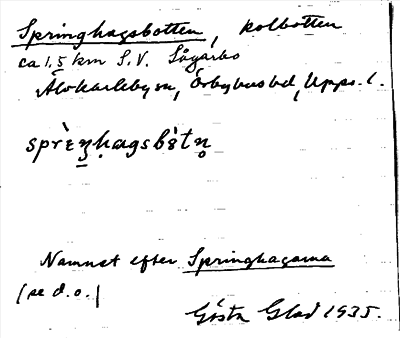 Springhagsbotten, kolbotten
ca 1,5 km S.V. Sågarbo
Älvkarleby sn, Örbyhus hd, Upps. l.
sprɛ̀ŋhagsbɷ̀tn̥
Namnet efter Springhagarna
(se d.o.)
Gösta Glad 1935.